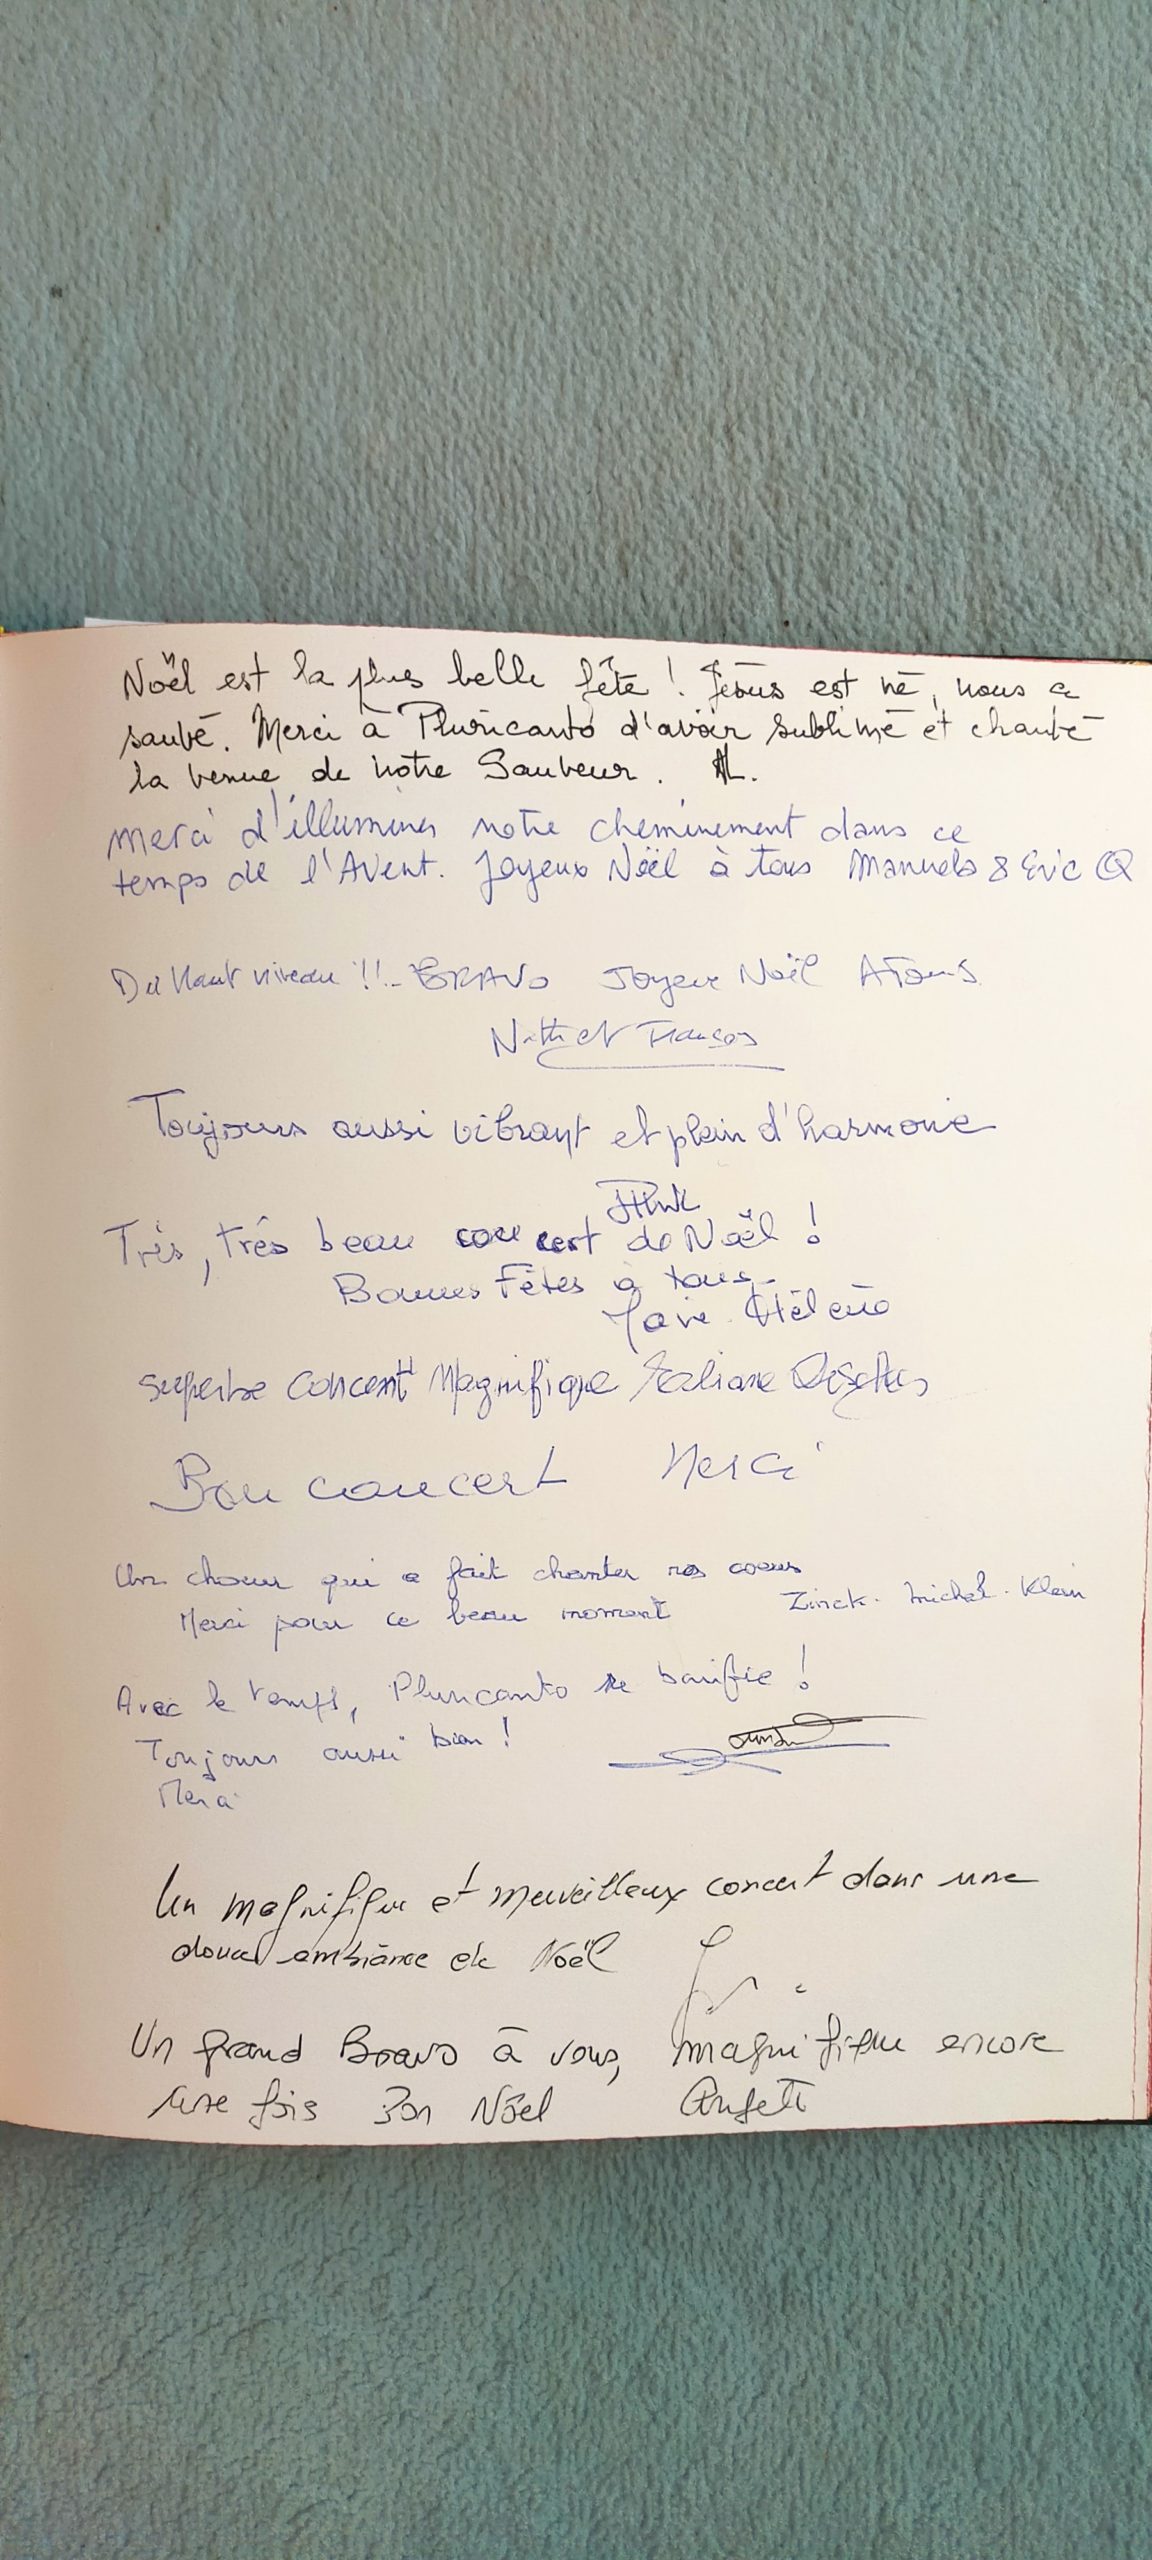 Noël est la plus belle fête ! Jésus est né, nous a
sauvé. Merci à Pluricanto d'avoir sublimé et chanté
la venue de notre Sauveur. AL.
Merci d'illuminer notre cheminement dans ce
temps de l'Avent. Joyeux Noël à tous Manuela & Eric
Du Haut niveau !! - BRAVO Joyeux Noël A Tous
et François
Toujours aussi vibrant et plein d'harmonie
Très, très beau concert de Noël !
Bonnes Fêtes à tous
Marie Hélène
Superbe concert Magnifique
Bon concert Merci
Un choeur qui a fait chanter nos coeurs
Merci pour ce beau moment Zinck - Michel - Klein
Avec le temps, Pluricanto se bonifie !
Toujours aussi bien !
Merci
Un magnifique et merveilleux concert dans une
douce ambiance de Noël
Un grand Bravo à vous, magnifique encore
une fois Bon Nöel